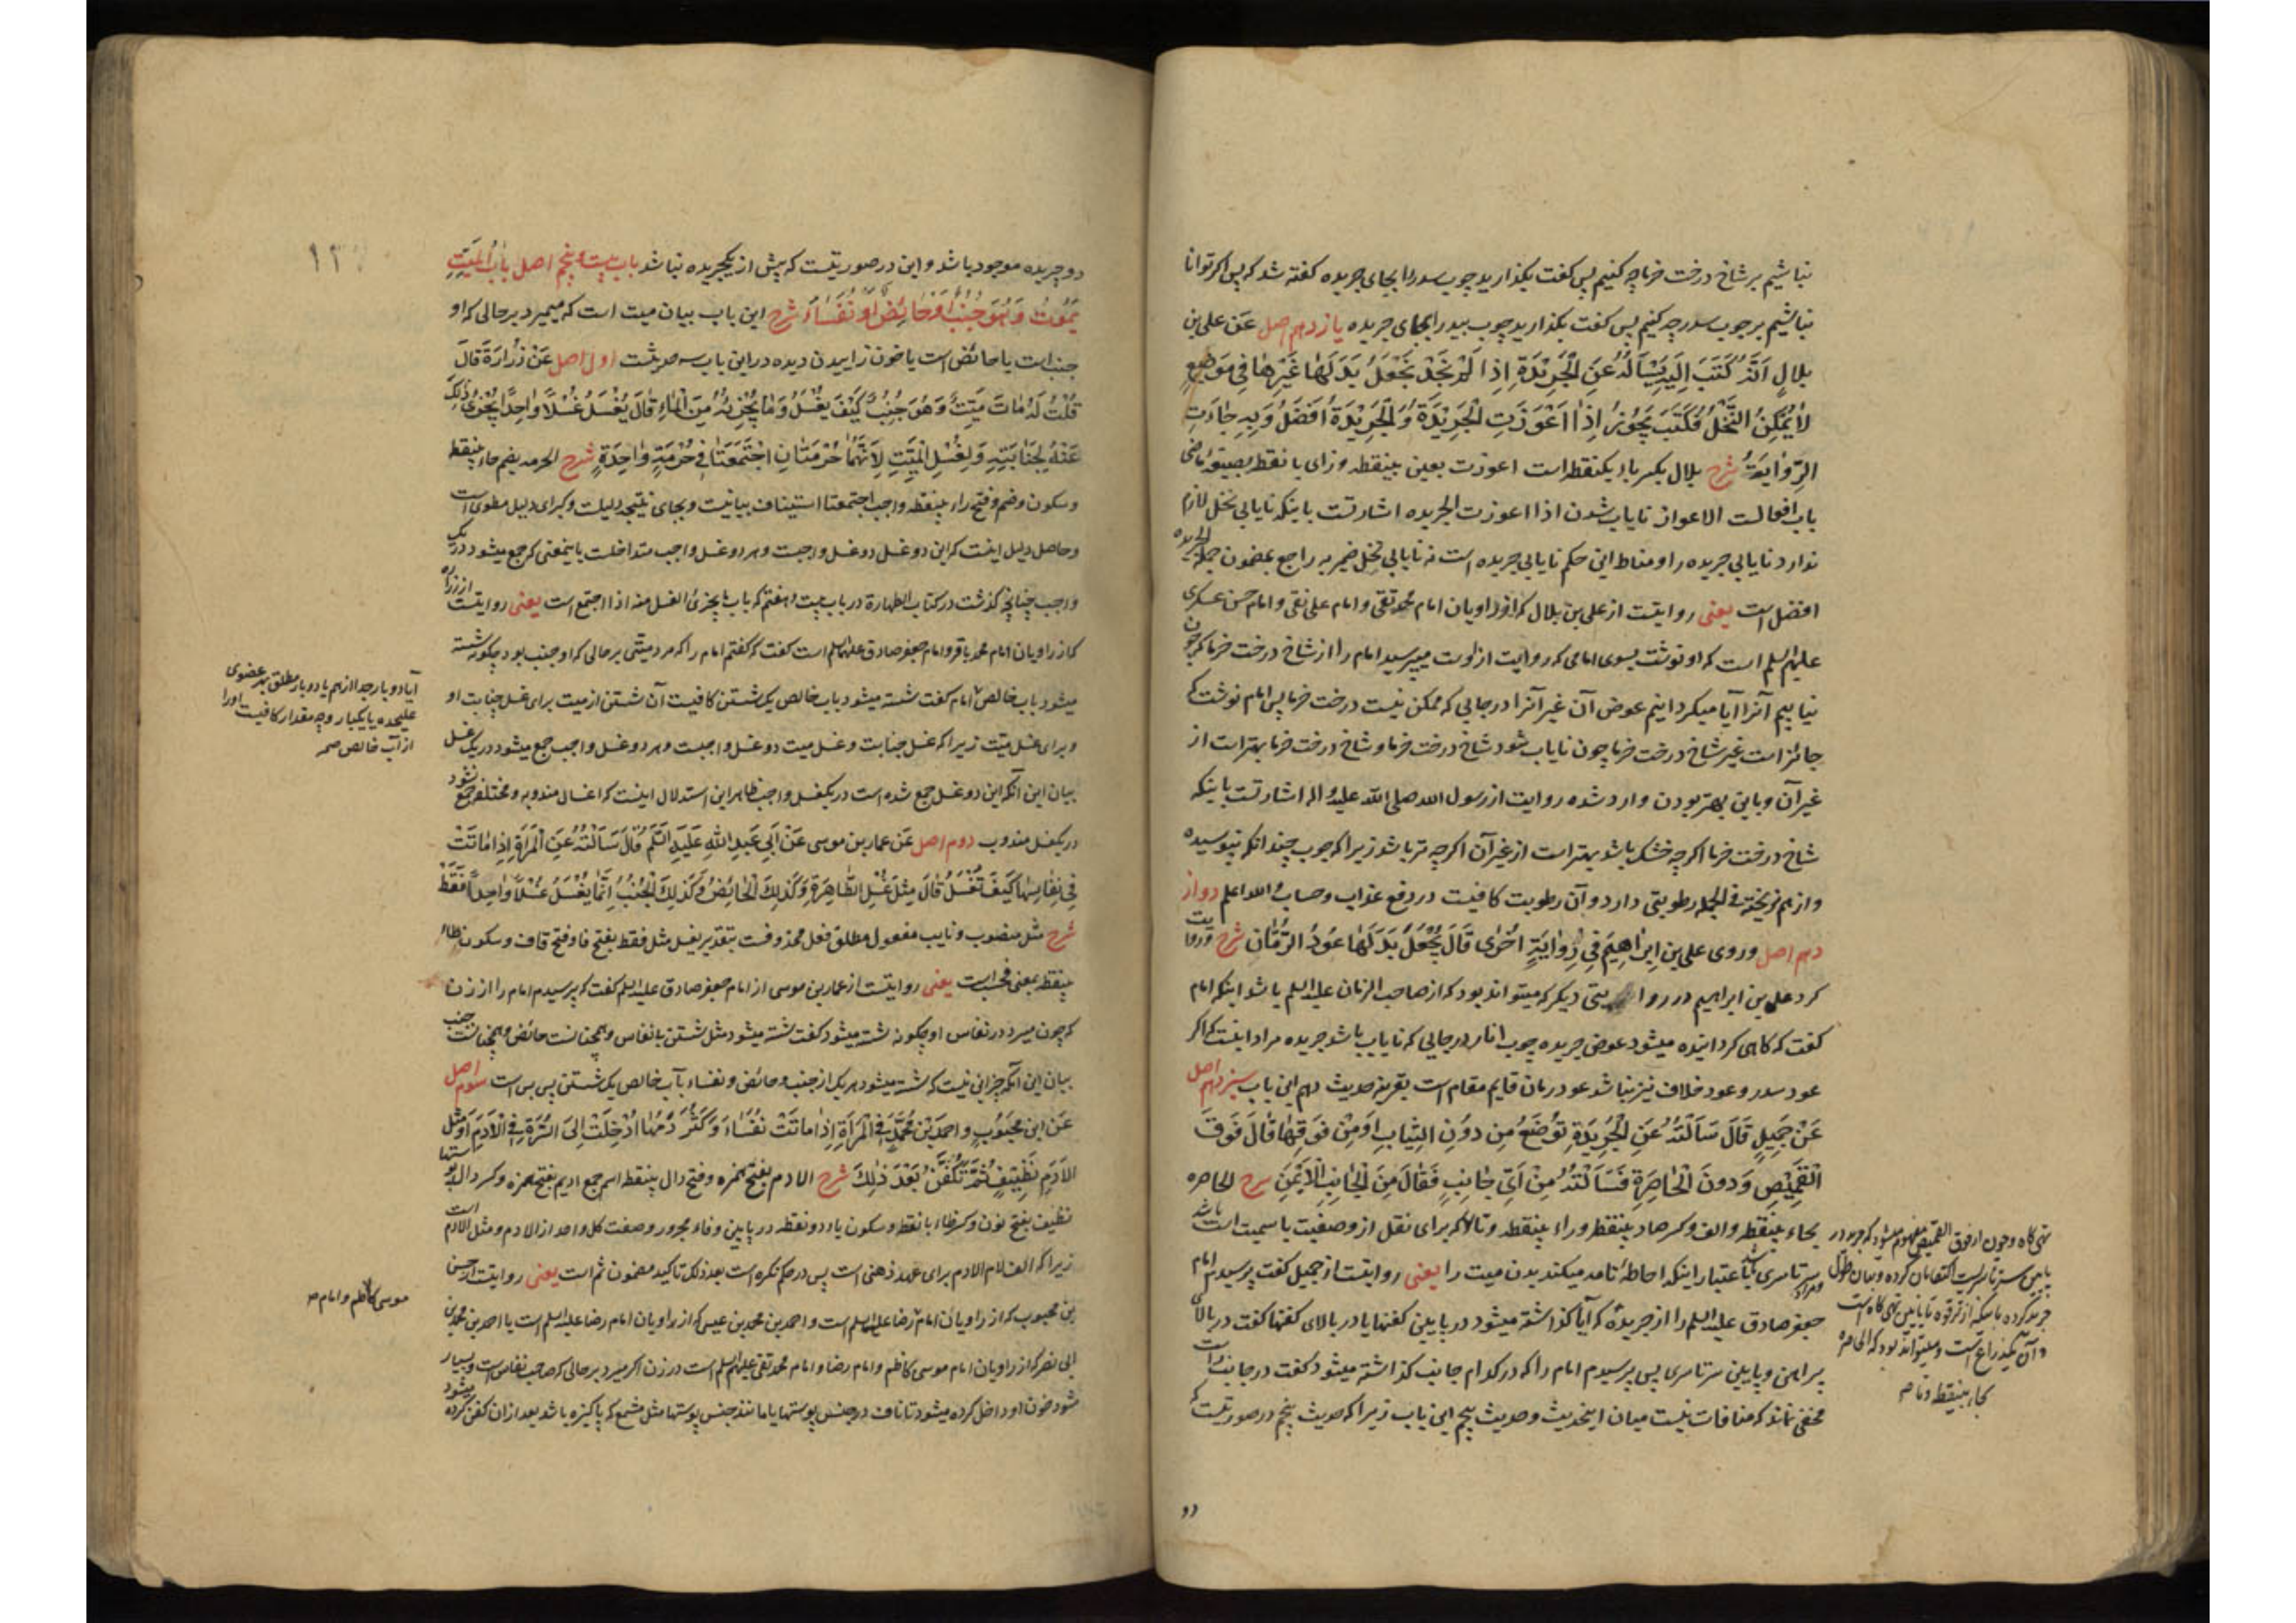 نباشیم بر شاخ درخت خرما چه کنیم پس گفت بگذارید چوب سدر را بجای جریده گفته شد که پس اگر توانا
نباشیم بر چوب سدر چه کنیم پس گفت بگذارید چوب بید را بجای جریده یازدهم اصل عَن علی بن
بلالٍ اَنَّهُ کَتَبَ اِلَیهِ یَسْاَلُهُ عَنِ الْجَرِیْدَةِ اِذا لَمْ نَجِدْ نَجْعَلُ بَدَلَهٰا غَیْرَهٰا فِی مَوضِعٍ
لٰا یُمْکِنُ النَّخْلُ فَکَتَبَ یَجُوْزُ اِذٰا اَعْوَزَتِ الْجَرِیْدَةُ وَالْجَرِیْدَةُ اَفْضَلُ وَبِهِ جٰاءَتِ
الرِّوٰایَةُ شرح بلال بکسر باء یکنقطه است اعوزت بعین بینقطه و زای با نقطه بصیغهٔ ماضی
باب افعالست الاعواز نایاب شدن اذا اعوزت الجریده اشارتست باینکه نایابی نخل لازم
ندارد نایابی جریده را و مناط این حکم نایابی جریده است نه نایابی نخل ضمیر به راجع بمضمون جمله الجریده
افضل است یعنی روایتست از علی بن بلال که از راویان امام محمد تقی و امام علی نقی و امام حسن عسکری
علیهم السلم است که او نوشت بسوی امامی که روایت از اوست میپرسید امام را از شاخ درخت خرما که چون
نیابیم آنرا آیا میگردانیم عوض آن غیر آنرا در جایی که ممکن نیست درخت خرما پس امام نوشت که
جائز است غیر شاخ درخت خرما چون نایاب شود شاخ درخت خرما و شاخ درخت خرما بهتر است از
غیر آن و باین بهتر بودن وارد شده روایت از رسول الله صلی الله علیه و اله اشارتست باینکه
شاخ درخت خرما اگرچه خشک باشد بهتر است از غیر آن اگرچه تر باشد زیرا که چوب چندانکه نپوسیده
و از هم نریخته فی الجمله رطوبتی دارد و آن رطوبت کافیست در دفع عذاب و حساب والله اعلم دواز
دهم اصل وروی علی بن اِبرٰاهِیمَ فِی رِوٰایَةٍ اُخْرٰی قَالَ یُجْعَلُ بَدَلَهٰا عُوْدُ الرُّمّٰان شرح و روایت
کرد علی بن ابراهیم در روایتی دیگر که میتواند بود که از صاحب الزمان علیه السلم باشد اینکه امام
گفت که گاهی گردانیده میشود عوض جریده چوب انار در جایی که نایاب باشد جریده مراد اینست که اگر
عود سدر و عود خلاف نیز نباشد عود رمان قایم مقام است بقرینه حدیث دهم این باب سیزدهم اصل
عَنْ جَمِیْلٍ قَالَ سَاَلْتُهُ عَنِ الْجَرِیْدَةِ تُوْضَعُ مِن دُوْنِ الثِّیٰابِ اَوْ مِنْ فَوْقِهٰا قَالَ فَوْقَ
الْقَمِیْصِ وَ دُونَ الْخٰاصِرَةِ فَسَاَلْتُهُ مِنْ اَیِّ جٰانِبٍ فَقٰالَ مِنَ الْجٰانِبِ الْاَیْمَنِ شرح الحاصره
بحاء بینقطه و الف و کسر صاد بینقطه و راء بینقطه و تاء که برای نقل از وصفیت باسمیت است باشد
سرتاسری باعتبار اینکه احاطهٔ تامه میکند بدن میت را یعنی روایتست از جمیل گفت پرسیدم امام
جعفر صادق علیه السلم را از جریده که آیا گذاشته میشود در پایین کفنها یا در بالای کفنها گفت در بالای
پیراهن و پایین سرتاسری پس پرسیدم امام را که در کدام جانب گذاشته میشود گفت در جانب راست
مخفی نماند که منافات نیست میان اینحدیث و حدیث پنجم این باب زیرا که حدیث پنجم در صورتیست که
تهی گاه و چون از فوق القمیص مفهوم میشود که جریده در
پایین سرتاسریست اکتفا بآن کرده و بیان طول
جریده کرده باینکه از ترقوه تا پایین تهی گاه است
و آن یکذراع است و میتواند بود که الحاصره
بحاء بینقطه و تا صح
دو
۱۲۰
دو جریده موجود باشد و این در صورتیست که بیش از یکجریده نباشد باب بیست و پنجم اصل بابُ المَیِّتِ
یَمُوتُ وَ هُوَ جُنُبٌ اَوْ حٰائِضٌ اَوْ نُفَسٰاءُ شرح این باب بیان میت است که میمیرد بر حالی که او
جنب است یا حائض است یا خون زاییدن دیده در این باب سه حدیثست اول اصل عَنْ زُرٰارَةَ قٰالَ
قُلْتُ لَهُ مٰاتَ مَیِّتٌ وَ هُوَ جُنُبٌ کَیْفَ یُغْسَلُ وَ مٰا یُجْزِیْهِ مِنَ الْمٰاءِ قٰالَ یُغْسَلُ غُسْلًا وٰاحِدًا یُجْزِئُ ذٰلِکَ
عَنْهُ لِجَنٰابَتِهِ وَ لِغُسْلِ الْمَیِّتِ لِاَنَّهُمٰا حُرْمَتٰانِ اجْتَمَعَتٰا فِی حُرْمَةٍ وٰاحِدَةٍ شرح الحرمه بضم حاء بینقطه
و سکون و ضم و فتح راء بینقطه واجب اجتمعتا استیناف بیانیست و بجای نتیجه دلیلست و کبرای دلیل مطوی است
و حاصل دلیل اینست که این دو غسل دو غسل واجبست و هر دو غسل واجب متداخلست باینمعنی که جمع میشود در یک
واجب چنانچه گذشت در کتاب الطهارة در باب بیست و هفتم که باب ما یجزئ الغسل منه اذا اجتمع است یعنی روایتست از زراره
که از راویان امام محمد باقر و امام جعفر صادق علیهما السلم است گفت که گفتم امام را که مرد میتی بر حالی که او جنب بود چگونه شسته
میشود بآب خالص امام گفت شسته میشود بآب خالص یک شستن کافیست آن شستن از میت برای غسل جنابت او
و برای غسل میّت زیرا که غسل جنابت و غسل میت دو غسل واجبست و هر دو غسل واجب جمع میشود در یک غسل
بیان این آنکه این دو غسل جمع شده است در یکغسل واجب ظاهر این استدلال اینست که اغسال مندوبه و مختلفه جمع نشود
در یکغسل مندوب دوم اصل عَن عمار بن موسی عَنْ اَبِی عَبدِ اللهِ عَلَیهِ السَّلَم قٰالَ سَاَلْتُهُ عَنِ الْمَرْاَةِ اِذٰا مٰاتَتْ
فِی نِفٰاسِهٰا کَیْفَ تُغْسَلُ قٰالَ مِثْلَ غُسْلِ الطّٰاهِرَةِ وَ کَذٰلِکَ الْحٰائِضُ وَ کَذٰلِکَ الْجُنُبُ اِنَّمٰا یُغْسَلُ غُسْلًا وٰاحِدًا فَقَطْ
شرح مثل منصوب و نایب مفعول مطلق فعل محذوفست بتقدیر یغسل مثل فقط بفتح فا و فتح قاف و سکون طاء
بینقطه بمعنی فحسب است یعنی روایتست از عمار بن موسی از امام جعفر صادق علیه السلم گفت که پرسیدم امام را از زن
که چون میرد در نفاس او چگونه شسته میشود گفت شسته میشود مثل شستن با نفاس و همچنانست حائض و همچنانست جنب
بیان این آنکه جز این نیست که شسته میشود هر یک از جنب و حائض و نفساء بآب خالص یک شستن پس بس است سوم اصل
عَنِ ابن مَحْبُوبٍ و احمدَ بْن مُحَمَّدٍ فِی الْمَرْاَةِ اِذٰا مٰاتَتْ نُفَسٰاءَ وَ کَثُرَ دَمُهٰا اُدْخِلَتْ اِلَی السُّرَّةِ فِی الْاَدَمِ اَوْ مِثْلِ
الْاَدَمِ نَظِیْفٍ ثُمَّ تُکَفَّنُ بَعْدَ ذٰلِکَ شرح الادم بفتح همزه و فتح دال بینقطه اسم جمع ادیم بفتح همزه و کسر دال پوستها
نظیف بفتح نون و کسر ظاء با نقطه و سکون یاء دو نقطه در پایین و فاء مجرور و صفت کل واحد از الادم و مثل الادم است
زیرا که الف لام الادم برای عهد ذهنی است پس در حکم نکره است بعد ذلک تاکید مضمون ثم است یعنی روایتست از حسن
بن محبوب که از راویان امام رضا علیه السلم است و احمد بن محمد بن عیسی که از راویان امام رضا علیه السلم است یا احمد بن محمد بن
ابی نصر که از راویان امام موسی کاظم و امام رضا و امام محمد تقی علیهم السلم است در زن اگر میرد بر حالی که صاحب نفاس است و بسیار
شود خون او داخل کرده میشود تا ناف در جنس پوستها یا مانند جنس پوستها مثل مشمع که پاکیزه باشد بعد از آن کفن کرده میشود
آیا دو بار جدا از هم یا دو بار مطلق هر عضوی
علیحده یا یکبار و چه مقدار کافیست او را
از آب خالص صح
موسی کاظم و امام صح